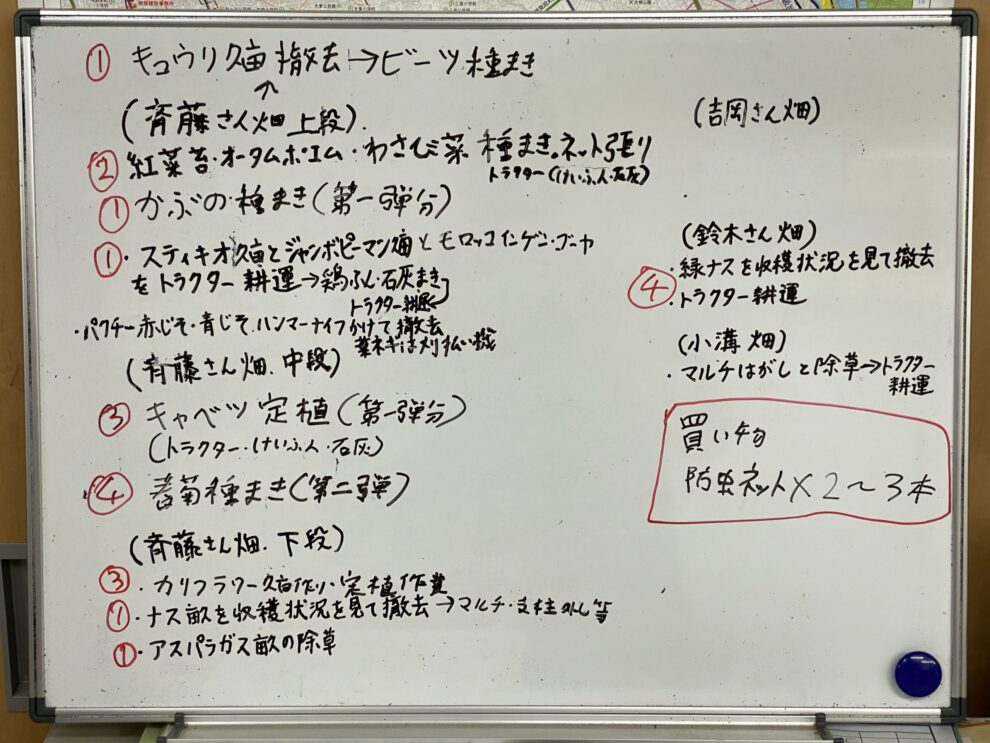 ① キュウリ畝撤去→ビーツ種まき
↑
(斉藤さん畑上段)
② 紅菜苔・オータムポエム・わさび菜 種まき。ネット張り
トラクター(けいふん・石灰)
① かぶの種まき(第一弾分)
① ・スティキオ畝とジャンボピーマン畝とモロッコインゲン・ゴーヤ
をトラクター耕運→鶏ふん・石灰まき
トラクター耕運
・パクチー赤じそ・青じそ、ハンマーナイフかけて撤去
葉ネギは刈払い機
(斉藤さん畑、中段)
③ キャベツ定植(第一弾分)
(トラクター・けいふん・石灰)
④ 春菊種まき(第二弾)
(斉藤さん畑、下段)
③ ・カリフラワー畝作り・定植作業
① ・ナス畝を収穫状況を見て撤去→マルチ・支柱外し等
① ・アスパラガス畝の除草
(吉岡さん畑)
(鈴木さん畑)
・緑ナスを収穫状況を見て撤去
④
・トラクター耕運
(小溝畑)
・マルチはがしと除草→トラクター
耕運
買い物
防虫ネット×2〜3本